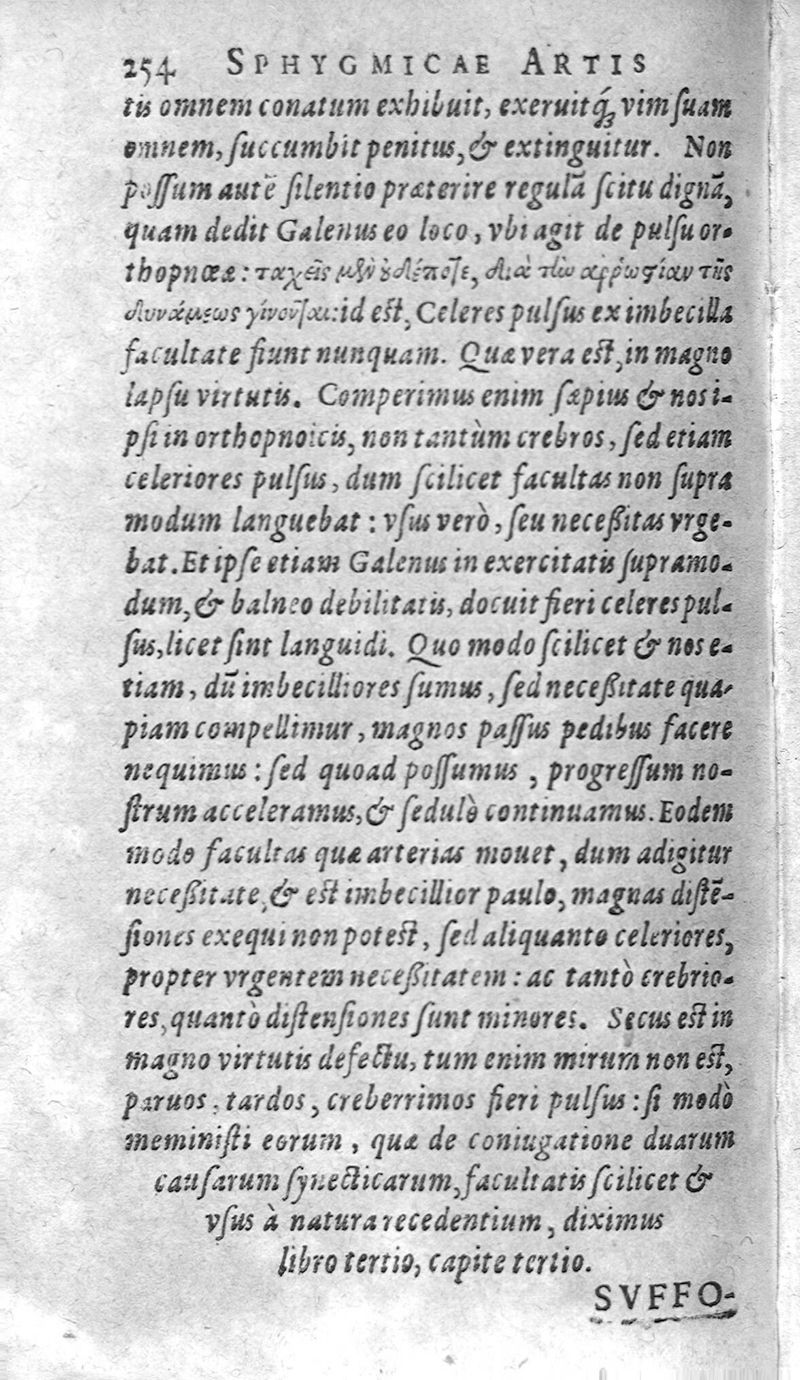 254 SPHYGMICAE ARTIS
tis omnem conatum exhibuit, exeruitq́ꝫ vim ſuam
omnem, ſuccumbit penitus, & extinguitur. Non
poſſum autē ſilentio præterire regulā ſcitu dignā,
quam dedit Galenus eo loco, vbi agit de pulſu or-
thopnœæ: ταχεῖς μὲν οὐδέποτε, διὰ τὴν ἀῤῥωστίαν τῆς
δυνάμεως γίνονται: id eſt, Celeres pulſus ex imbecilla
facultate fiunt nunquam. Quæ vera eſt, in magno
lapſu virtutis. Comperimus enim ſæpius & nos i-
pſi in orthopnoicis, non tantùm crebros, ſed etiam
celeriores pulſus, dum ſcilicet facultas non ſupra
modum languebat: vſus verò, ſeu neceßitas vrge-
bat. Et ipſe etiam Galenus in exercitatis ſupramo-
dum, & balneo debilitatis, docuit fieri celeres pul-
ſus, licet ſint languidi. Quo modo ſcilicet & nos e-
tiam, dū imbecilliores ſumus, ſed neceßitate qua-
piam compellimur, magnos paſſus pedibus facere
nequimus: ſed quoad poſſumus, progreſſum no-
ſtrum acceleramus, & ſedulò continuamus. Eodem
modo facultas quæ arterias mouet, dum adigitur
neceßitate, & eſt imbecillior paulo, magnas diſtē-
ſiones exequi non poteſt, ſed aliquanto celeriores,
propter vrgentem neceßitatem: ac tantò crebrio-
res, quantò diſtenſiones ſunt minores. Secus eſt in
magno virtutis defectu, tum enim mirum non eſt,
paruos, tardos, creberrimos fieri pulſus: ſi modò
meminiſti eorum, quæ de coniugatione duarum
cauſarum ſynecticarum, facultatis ſcilicet &
vſus à natura recedentium, diximus
libro tertio, capite tertio.
SVFFO-